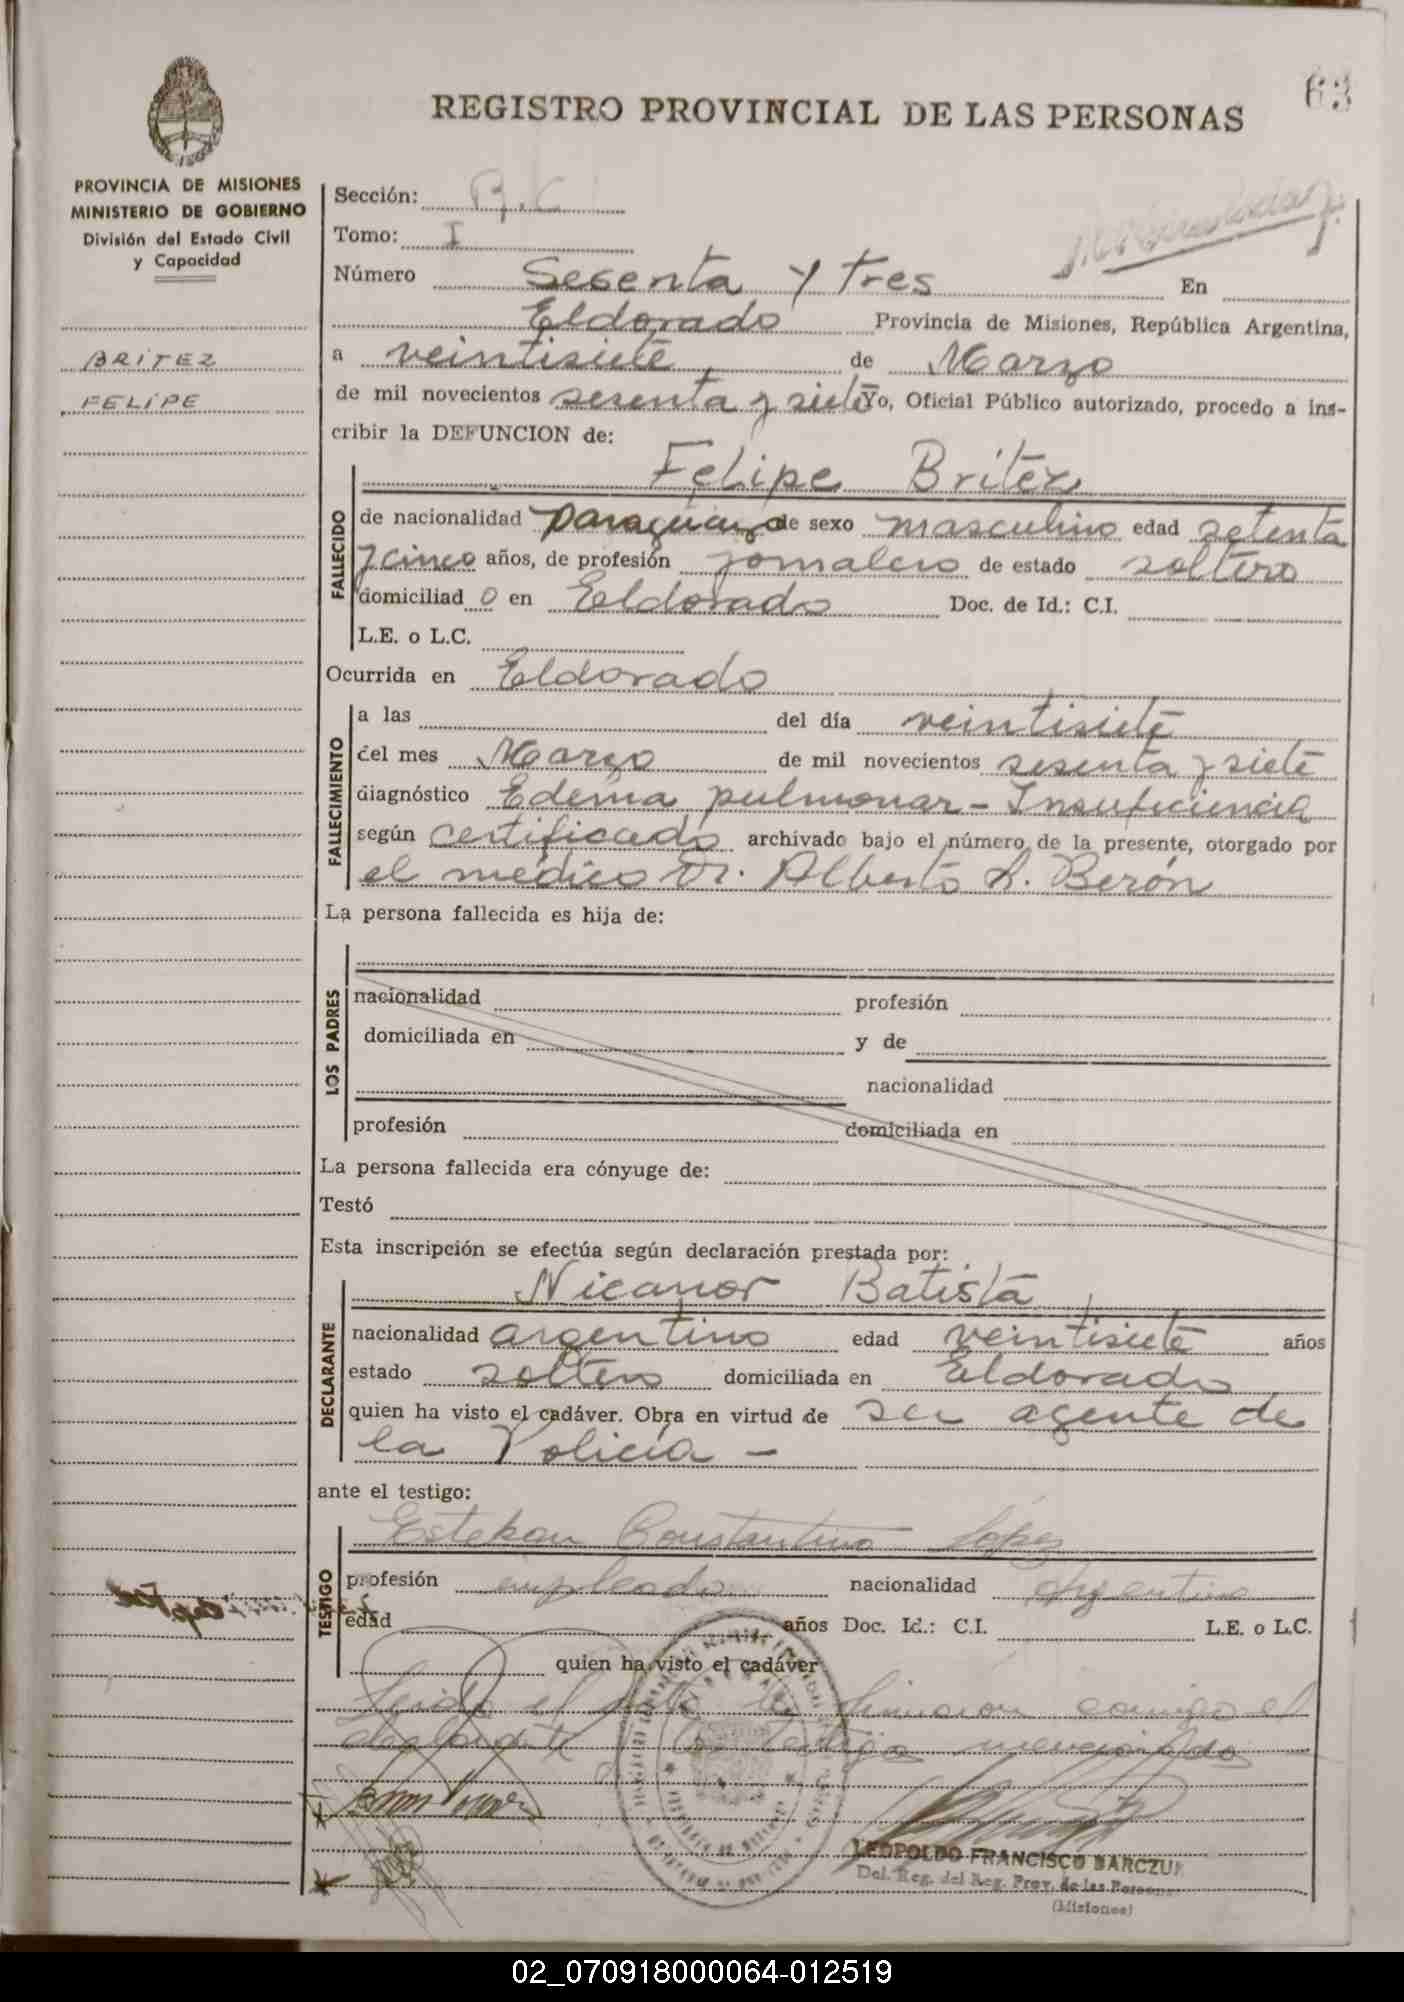 63
REGISTRO PROVINCIAL DE LAS PERSONAS
PROVINCIA DE MISIONES
MINISTERIO DE GOBIERNO
División del Estado Civil
y Capacidad
BRITEZ
FELIPE
Sección: R.C
Tomo: I
Número Sesenta y tres En
Eldorado Provincia de Misiones, República Argentina,
a veintisiete de Marzo
de mil novecientos sesenta y siete Yo, Oficial Público autorizado, procedo a ins-
cribir la DEFUNCION de:
Felipe Britez
FALLECIDO
de nacionalidad paraguayo de sexo masculino edad setenta
y cinco años, de profesión jornalero de estado soltero
domiciliad o en Eldorado Doc. de Id.: C.I.
L.E. o L.C.
Ocurrida en Eldorado
FALLECIMIENTO
a las del día veintisiete
del mes Marzo de mil novecientos sesenta y siete
diagnóstico Edema pulmonar - Insuficiencia
según certificado archivado bajo el número de la presente, otorgado por
el médico Dr. Alberto L. Berón
La persona fallecida es hija de:
LOS PADRES
nacionalidad profesión
domiciliada en y de
nacionalidad
profesión domiciliada en
La persona fallecida era cónyuge de:
Testó
Esta inscripción se efectúa según declaración prestada por:
Nicanor Batista
DECLARANTE
nacionalidad argentino edad veintisiete años
estado soltero domiciliada en Eldorado
quien ha visto el cadáver. Obra en virtud de ser agente de
la Policía -
ante el testigo:
Esteban Constantino López
TESTIGO
profesión empleado nacionalidad Argentina
edad años Doc. Id.: C.I. L.E. o L.C.
quien ha visto el cadáver
Leída el acta la firmaron conmigo el
declarante testigo mencionado
LEOPOLDO FRANCISCO BARCZUK
Del. Reg. del Reg. Prov. de las Personas
(Misiones)
02_070918000064-012519